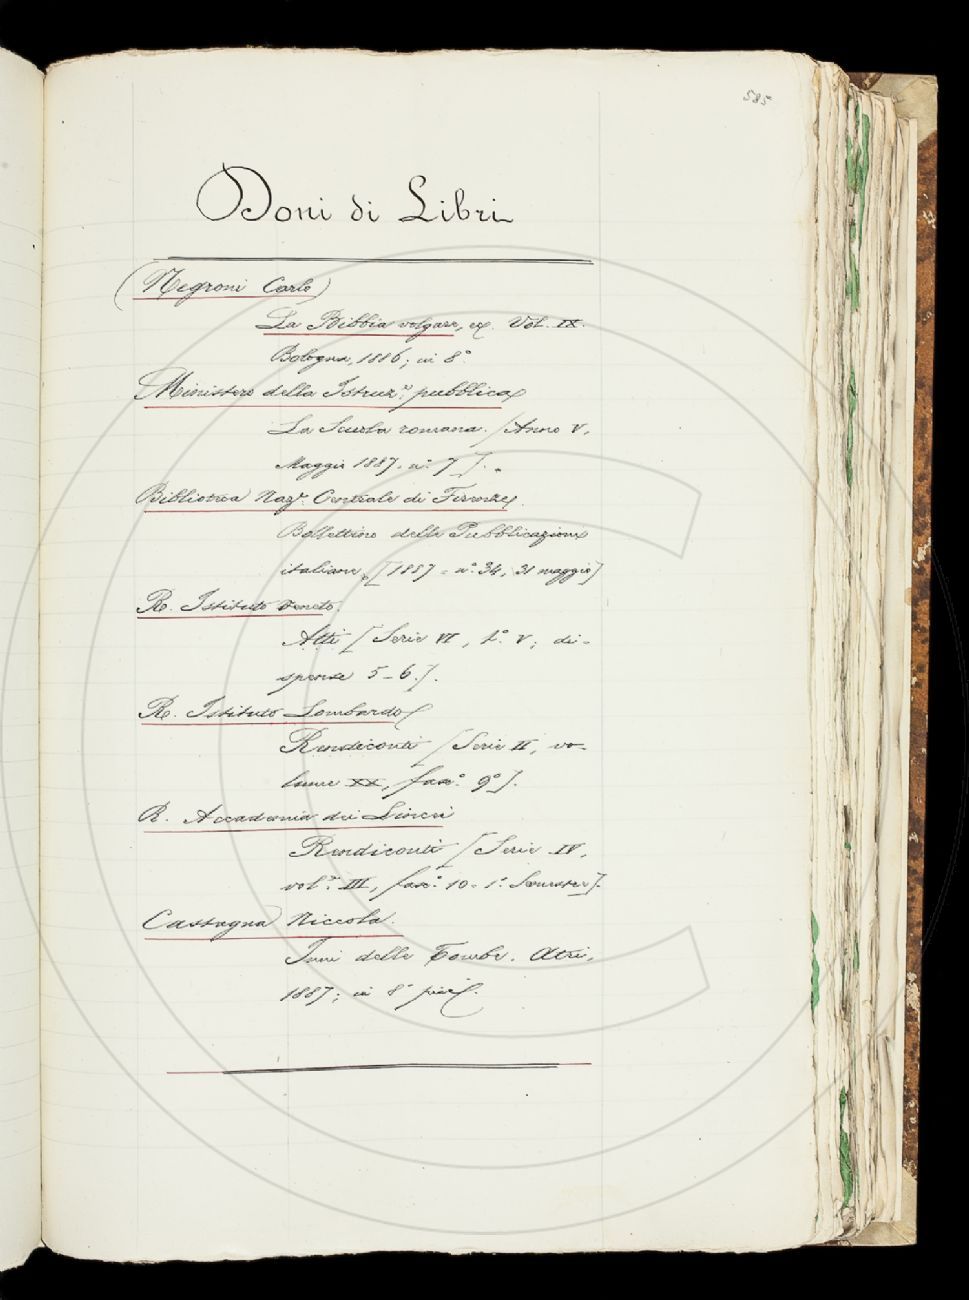 585
Doni di Libri
(Negroni Carlo)
La Bibbia volgare, ex. Vol. IX.
Bologna, 1886; in 8°.
Ministero della Istruz.e pubblica
La Scuola romana. [Anno V,
Maggio 1887. n° 7].
Biblioteca Naz.e Centrale di Firenze.
Bollettino delle Pubblicazioni
italiane. [1887 - n°. 34, 31 maggio]
R. Istituto Veneto.
Atti [Serie VI, t.° V; di-
spense 5-6.].
R. Istituto Lombardo
Rendiconti [Serie II, vo-
lume XX, fasc.° 9°].
R. Accademia dei Lincei
Rendiconti [Serie IV,
vol.e III, fasc.° 10 - 1° Semestre].
Castagna Niccola.
Inni delle Tombe. Atri,
1887; in 8° picc.